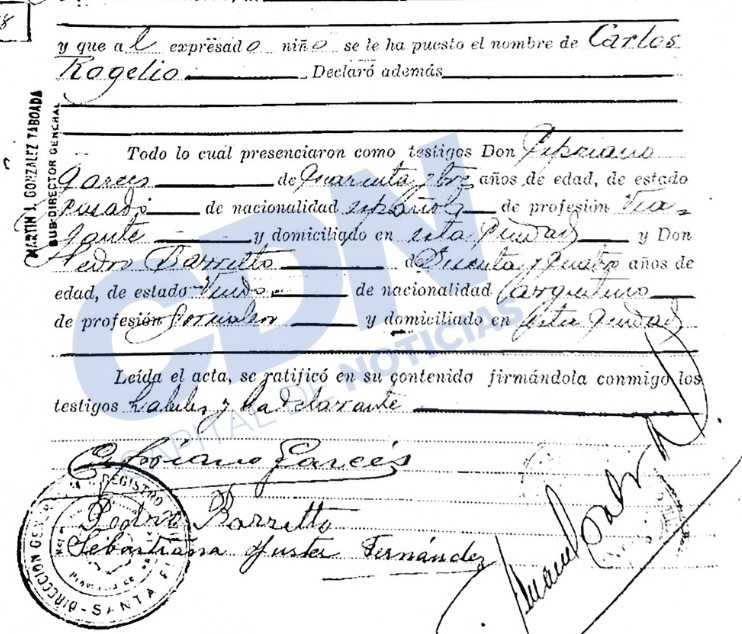 y que al expresado niño se le ha puesto el nombre de Carlos
Rogelio Declaró además
Todo lo cual presenciaron como testigos Don Cipriano
Garcés de cuarenta y tres años de edad, de estado
casado de nacionalidad española de profesión Via-
jante y domiciliado en esta Ciudad y Don
Pedro Barretto de y cuatro años de
edad, de estado Viudo de nacionalidad argentino
de profesión Jornalero y domiciliado en esta Ciudad
Leída el acta, se ratificó en su contenido firmándola conmigo los
testigos hábiles y la declarante
Cipriano Garcés
Pedro Barretto
Sebastiana Yuste Fernández
MARTIN J. GONZALEZ TABOADA
SUB-DIRECTOR GENERAL
CDN
CAPITAL DE NOTICIAS
DIRECCION GENERAL REGISTRO
SANTA FE